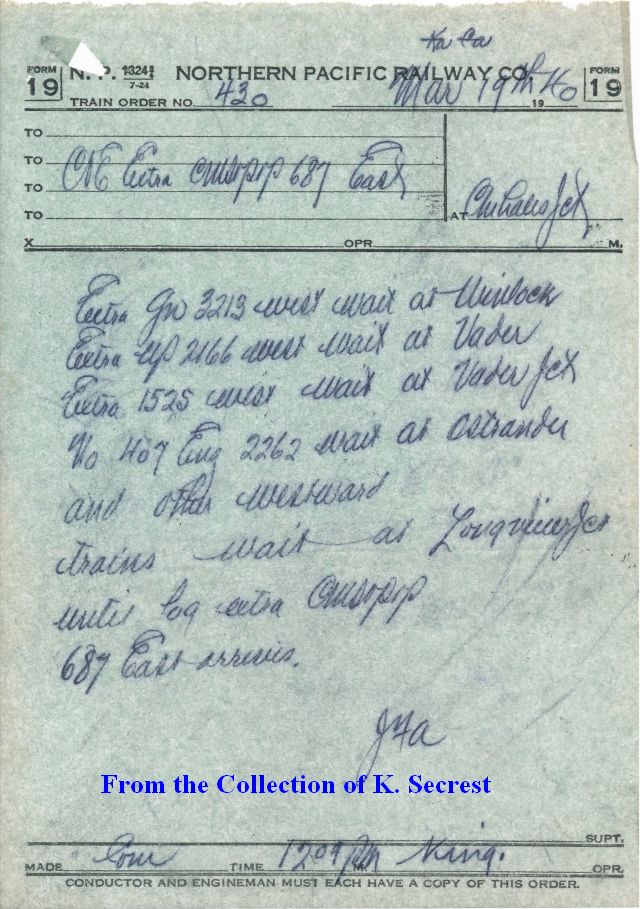 Ka Ca
FORM 19 N. P. 1324½ 7-24 NORTHERN PACIFIC RAILWAY CO. FORM 19
TRAIN ORDER NO. 430 Mar 19th 1940
TO
TO
TO C&E Extra CMStPP 687 East
TO AT Chehalis Jct
X OPR. M.
Extra GN 3213 west wait at Winlock
Extra UP 2166 west wait at Vader
Extra 1525 west wait at Vader Jct
No 407 Eng 2262 wait at Ostrander
and other westward
trains wait at Longview Jct
until log extra CMStPP
687 East arrives.
JFA
From the Collection of K. Secrest
SUPT.
MADE Com TIME 1209 PM King. OPR.
CONDUCTOR AND ENGINEMAN MUST EACH HAVE A COPY OF THIS ORDER.